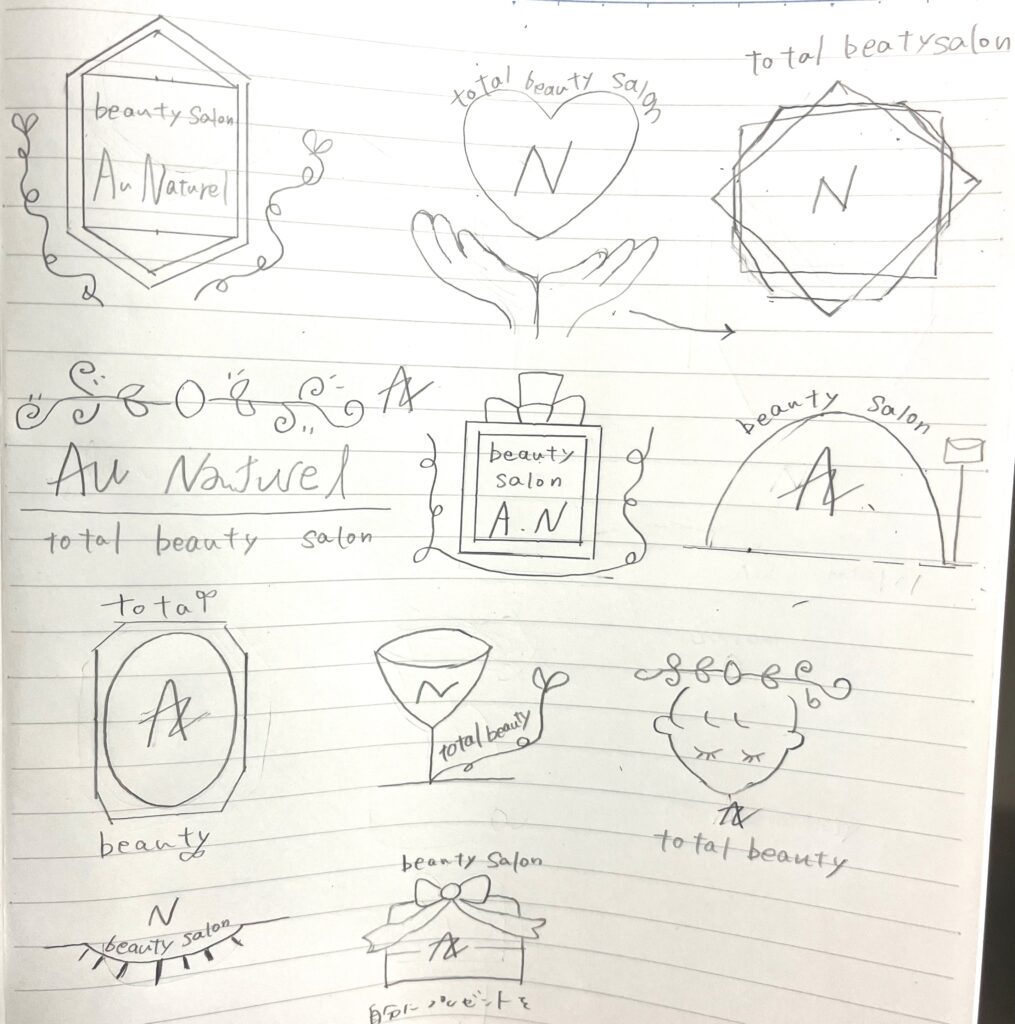 beauty salon
Au Naturel
total beauty salon
N
total beatysalon
N
AN
Au Naturel
total beauty salon
beauty
salon
A.N
beauty salon
AN.
total
AN
beauty
N
total beauty
AN
total beauty
N
beauty salon
beauty salon
AN
自分にプレゼントを